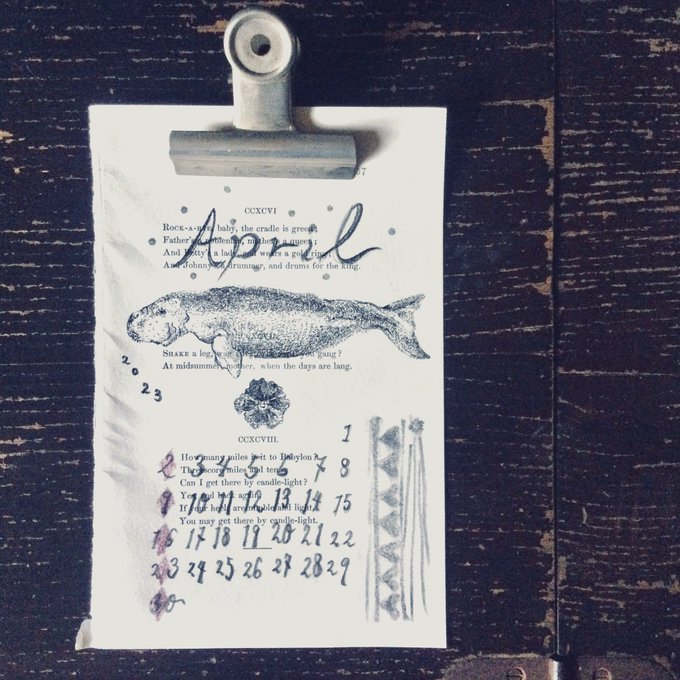 7
CCXCVI
April
ROCK-A-BYE, baby, the cradle is green;
Father's a nobleman, mother's a queen;
And Betty's a lady, and wears a gold ring;
And Johnny's a drummer, and drums for the king.
SHAKE a leg, you gang?
At midsummer, mother, when the days are lang.
2023
CCXCVIII.
How many miles is it to Babylon?
Threescore miles and ten.
Can I get there by candle-light?
Yes, and back again.
If your heels are nimble and light,
You may get there by candle-light.
1
2 3 4 5 6 7 8
9 10 11 12 13 14 15
16 17 18 19 20 21 22
23 24 25 26 27 28 29
30